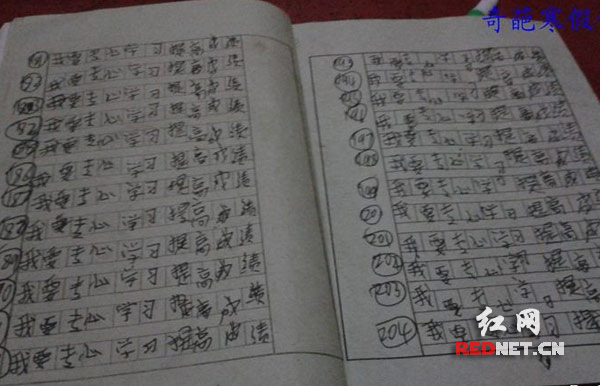 奇葩寒假
我要专心学习提高成绩
我要专心学习提高成绩
我要专心学习提高成绩
我要专心学习提高成绩
我要专心学习提高成绩
我要专心学习提高成绩
187 我要专心学习提高成绩
我要专心学习提高成绩
我要专心学习提高成绩
我要专心学习提高成绩
我要专心学习提高成绩
我要专心学习提高成绩
193 我要专心学习提高成绩
我要专心学习提高成绩
我要专心学习提高成绩
196 我要专心学习提高成绩
197 我要专心学习提高成绩
198 我要专心学习提高成绩
199 我要专心学习提高成绩
20 我要专心学习提高成
201 我要专心学习提高成
202 我要专心学习提高成
203 我要专心学习提高
204 我要学习提
红网
REDNET.CN